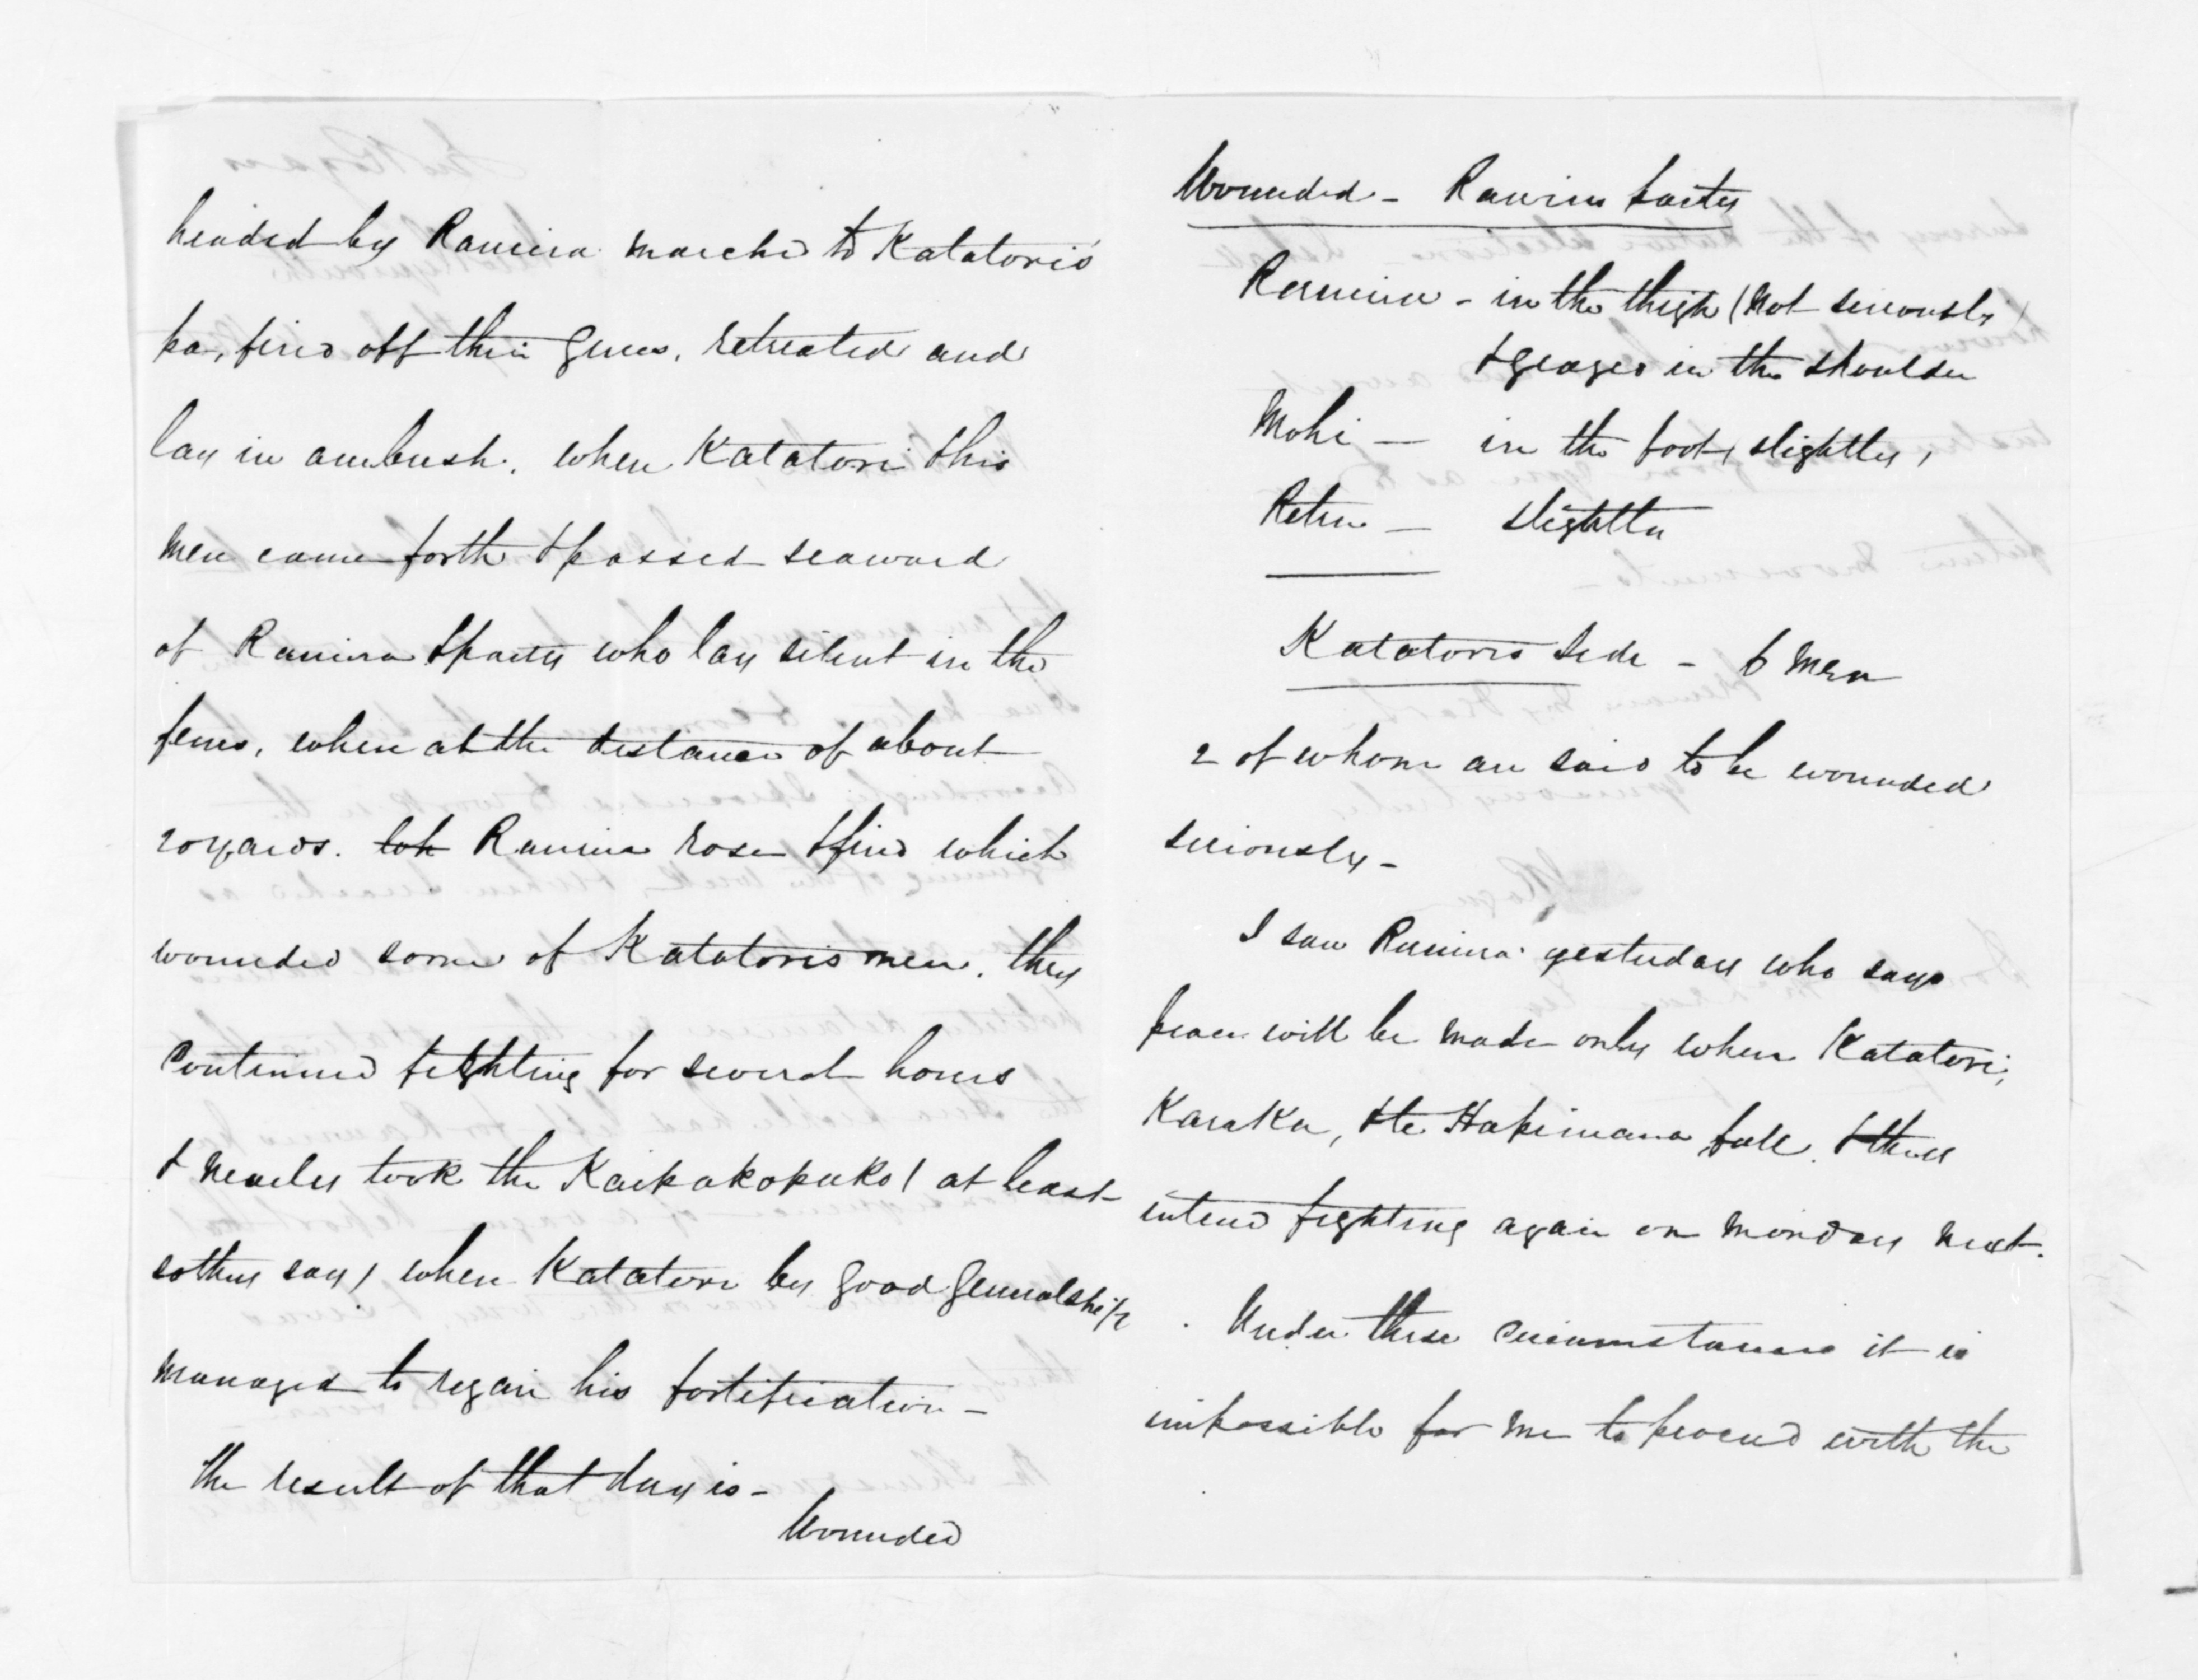 headed by Raniera marched to Katatori's
pa, fired off their guns, retreated and
lay in ambush. when Katatori & his
men came forth & passed seaward
of Raniera & party who lay silent in the
ferns, when at the distance of about
20 yards. Raniera rose & fired which
wounded some of Katatoris men. they
continued fighting for several hours
& nearly took the Kaipakopako (at least
so they say) when Katatori by good generalship
managed to regain his fortification -
The result of that day is -
Wounded
Wounded - Ranieras party
Raniera - in the thigh (not seriously)
& grazed in the shoulder
Mohi - in the foot (slightly)
- slightly
Katatoris side - 6 men
2 of whom are said to be wounded
seriously -
I saw Raniera yesterday who says
peace will be made only when Katatori,
Karaka, & te Hapimana fall. & they
intend fighting again on Monday next.
Under these circumstances it is
impossible for me to proceed with the